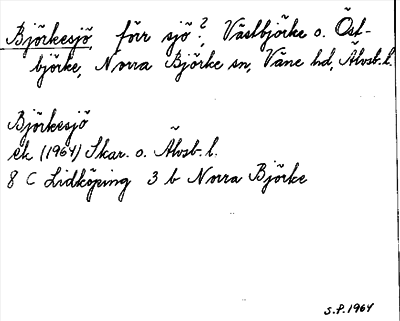 Björkesjö, förr sjö?, Västbjörke o. Öst-
björke, Norra Björke sn, Väne hd, Älvsb. l.
Björkesjö
ek (1964) Skar. o. Älvsb. l.
8 C Lidköping 3 b Norra Björke
S.P. 1964